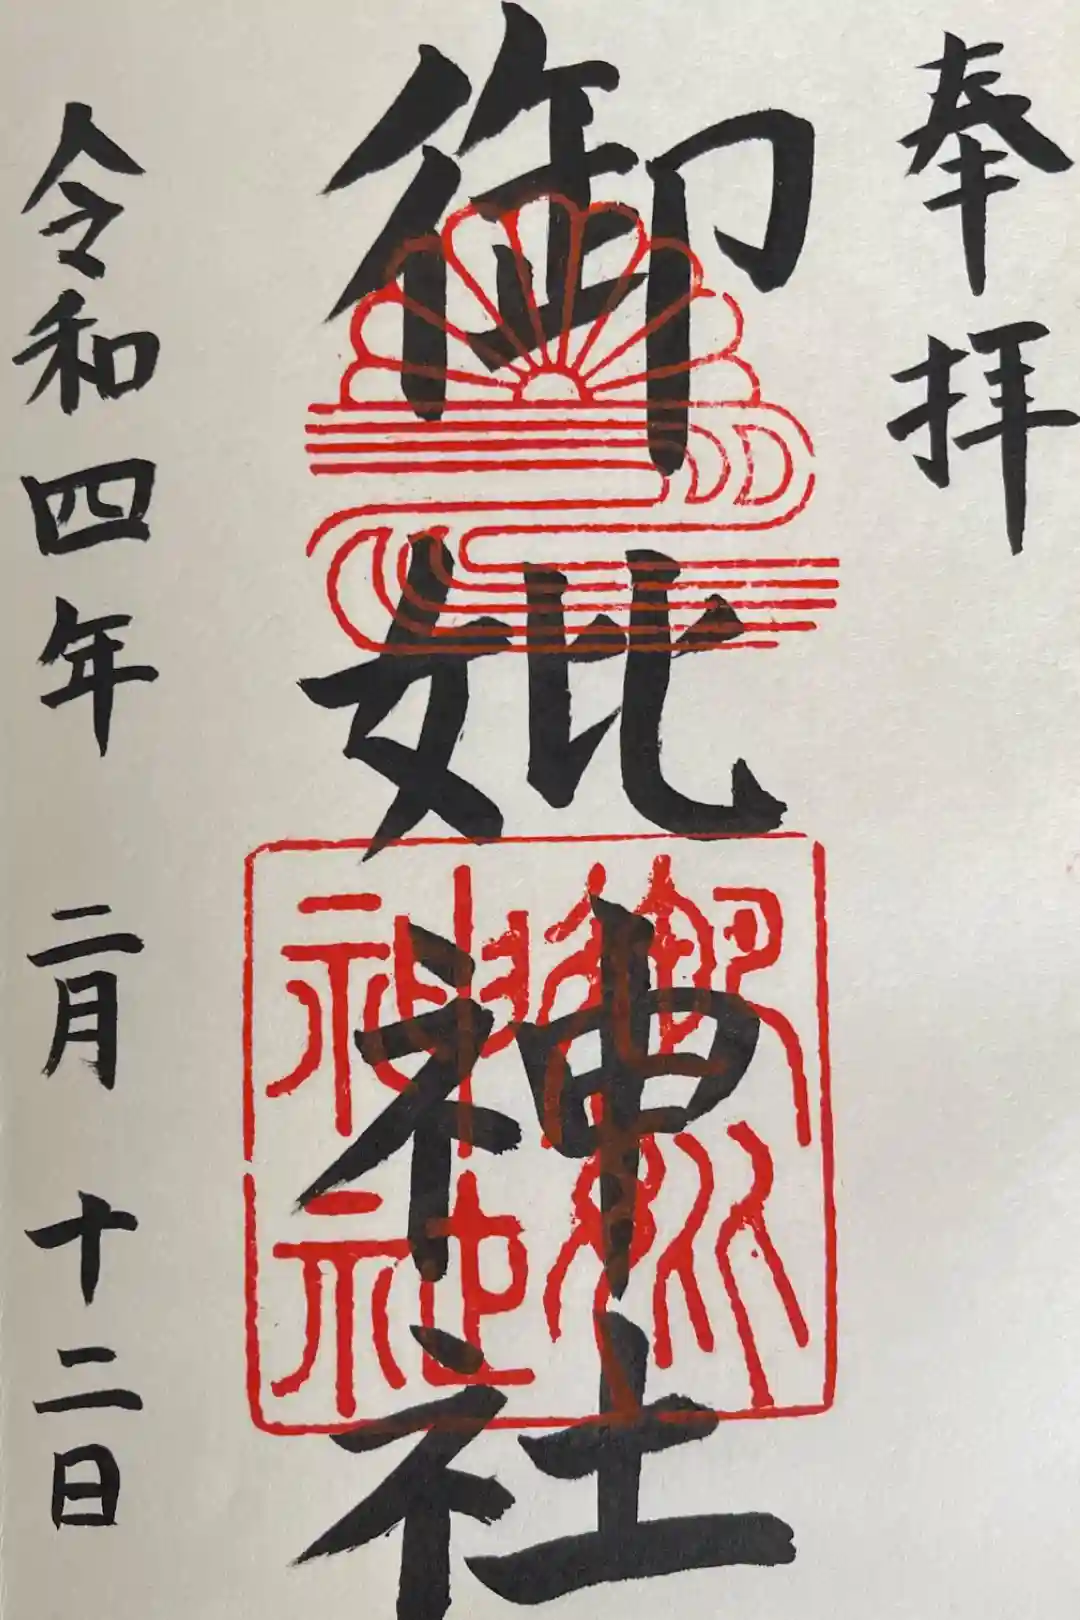 奉拝
御妣神社
御妣神社
令和四年 二月 十二日